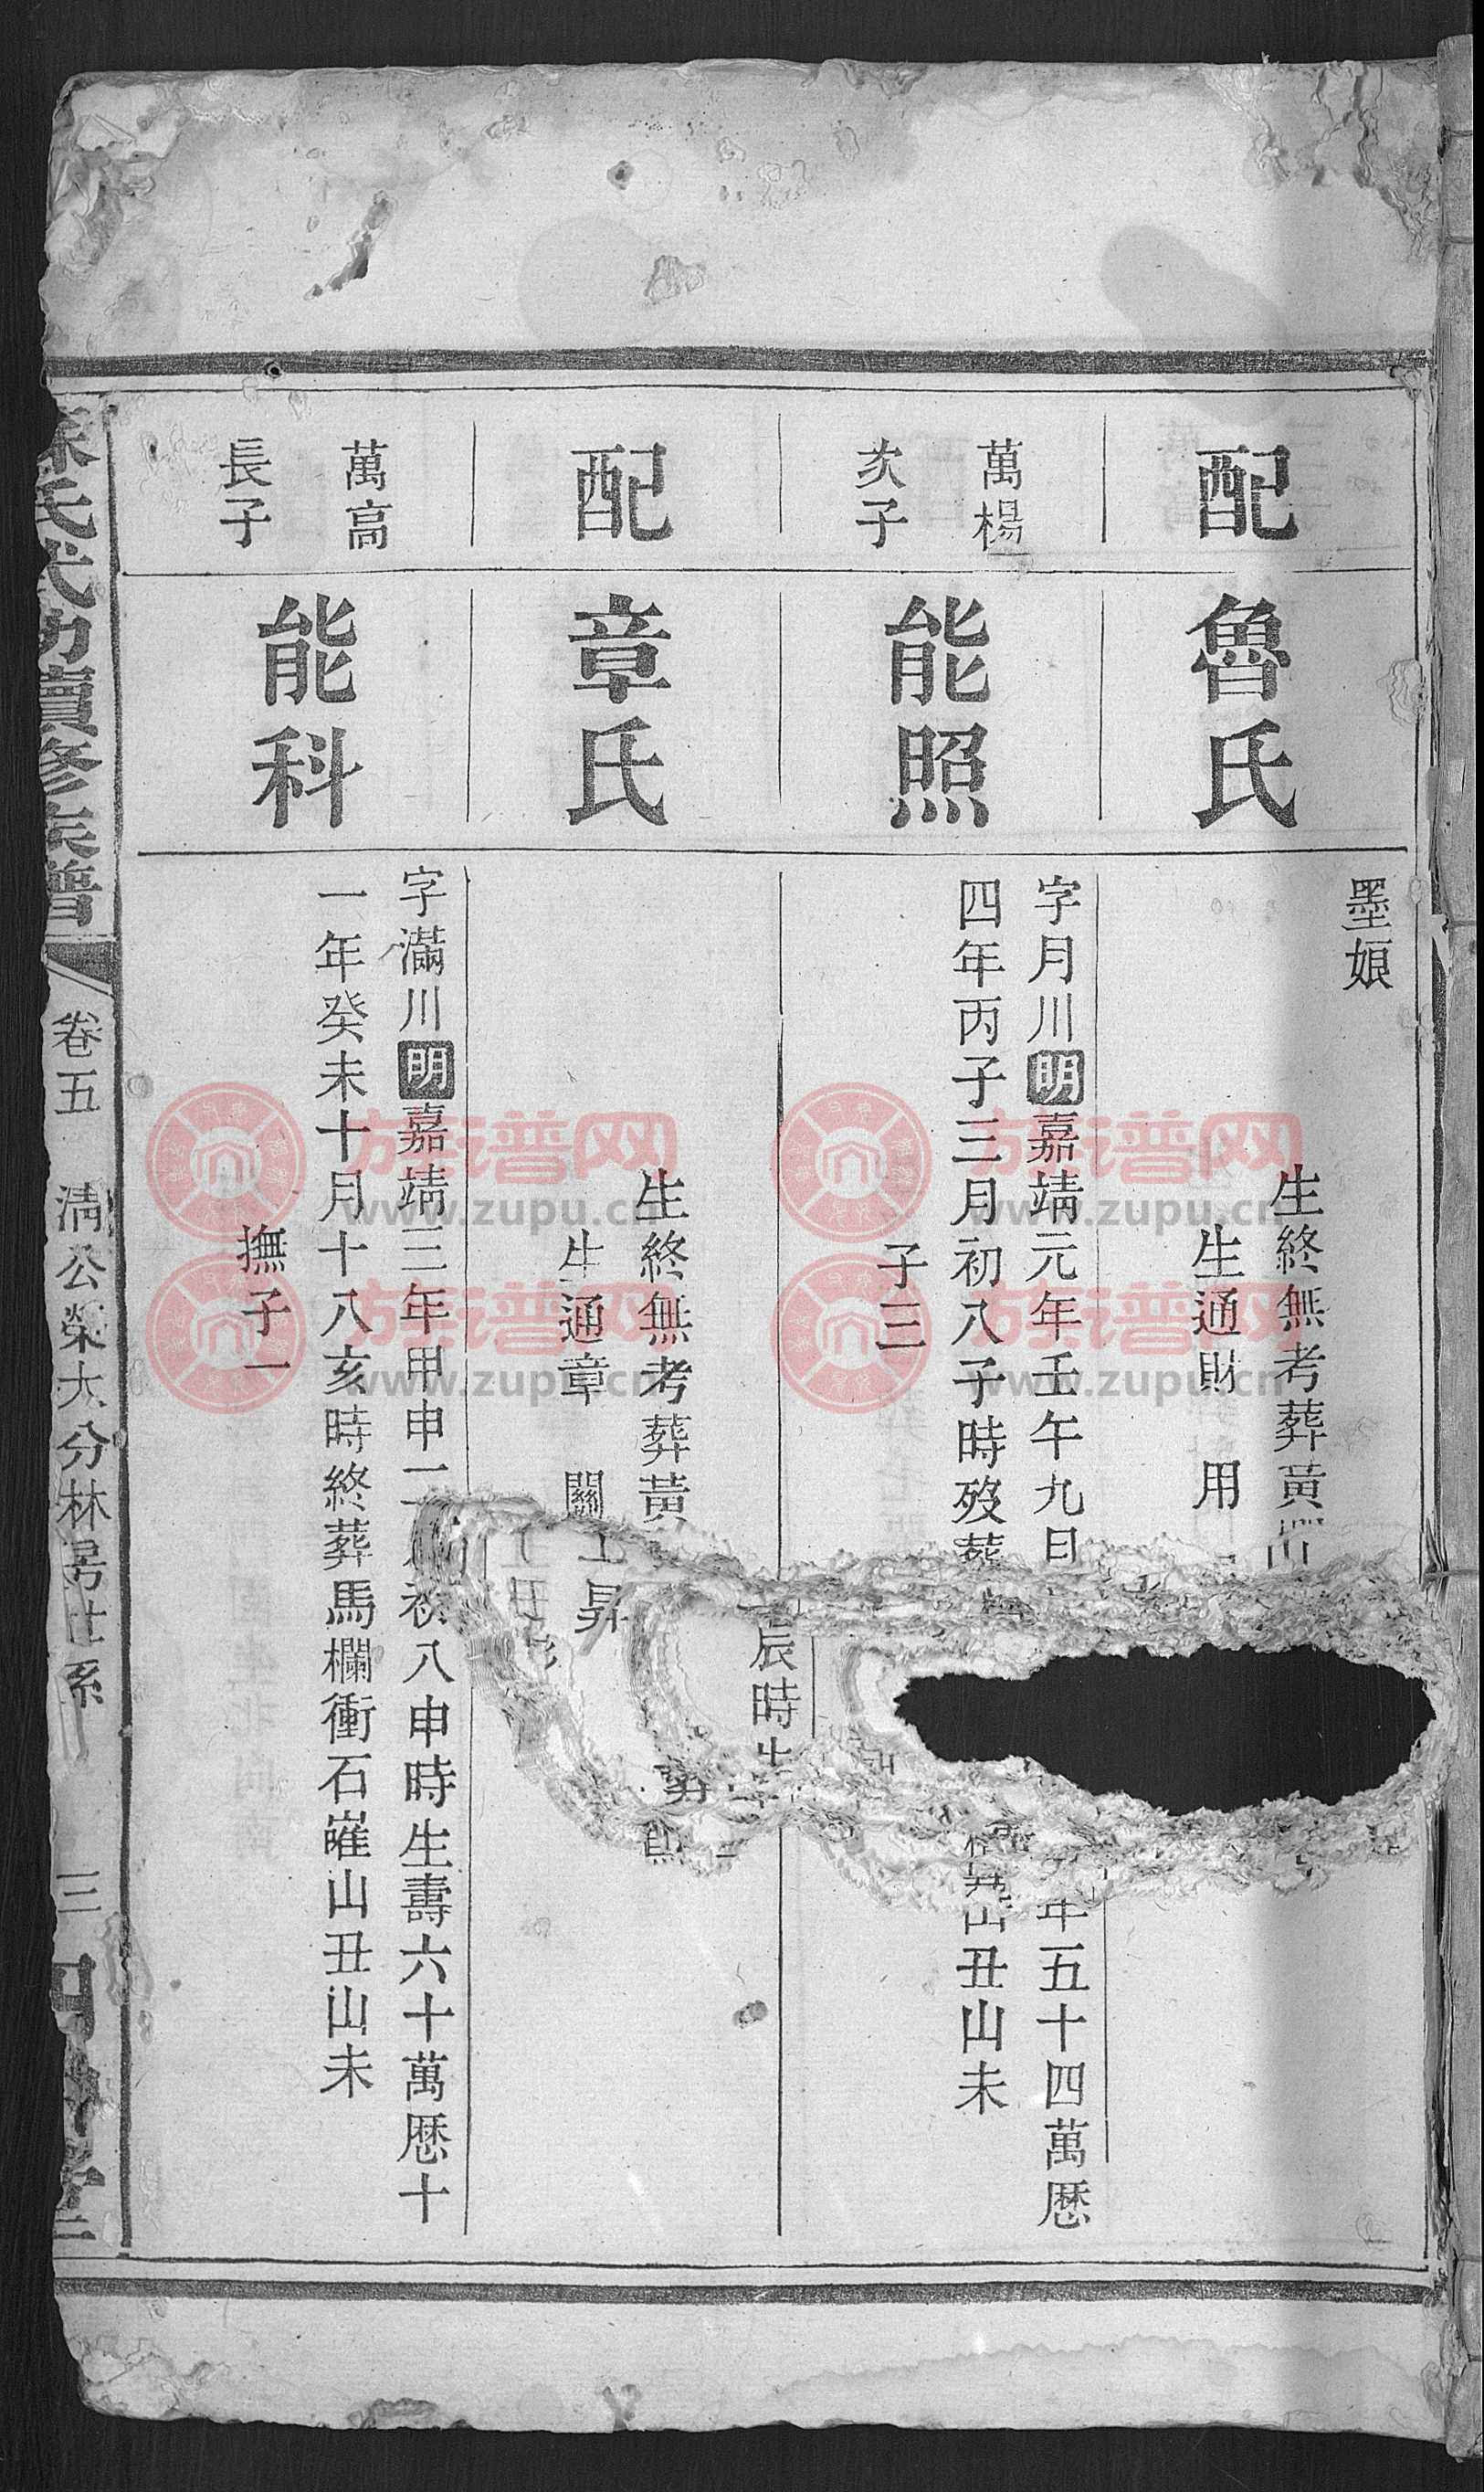 配
魯氏
墨娘
生終無考葬黃
生通財 用
萬楊
次子
能照
字月川明嘉靖元年壬午九
年五十四萬歷
四年丙子三月初八子時歿葬
山丑山未
子三
配
章氏
辰時
生終無考葬黃
生通章 關
昇
萬高
長子
能科
字滿川明嘉靖三年甲申
初八申時生壽六十萬歷十
一年癸未十月十八亥時終葬馬欄衝石嶉山丑山未
撫子一
氏
續修族譜
卷五 清公榮大分林房世系 三
族谱网
www.zupu.cn
族谱网
www.zupu.cn
族谱网
www.zupu.cn
族谱网
www.zupu.cn